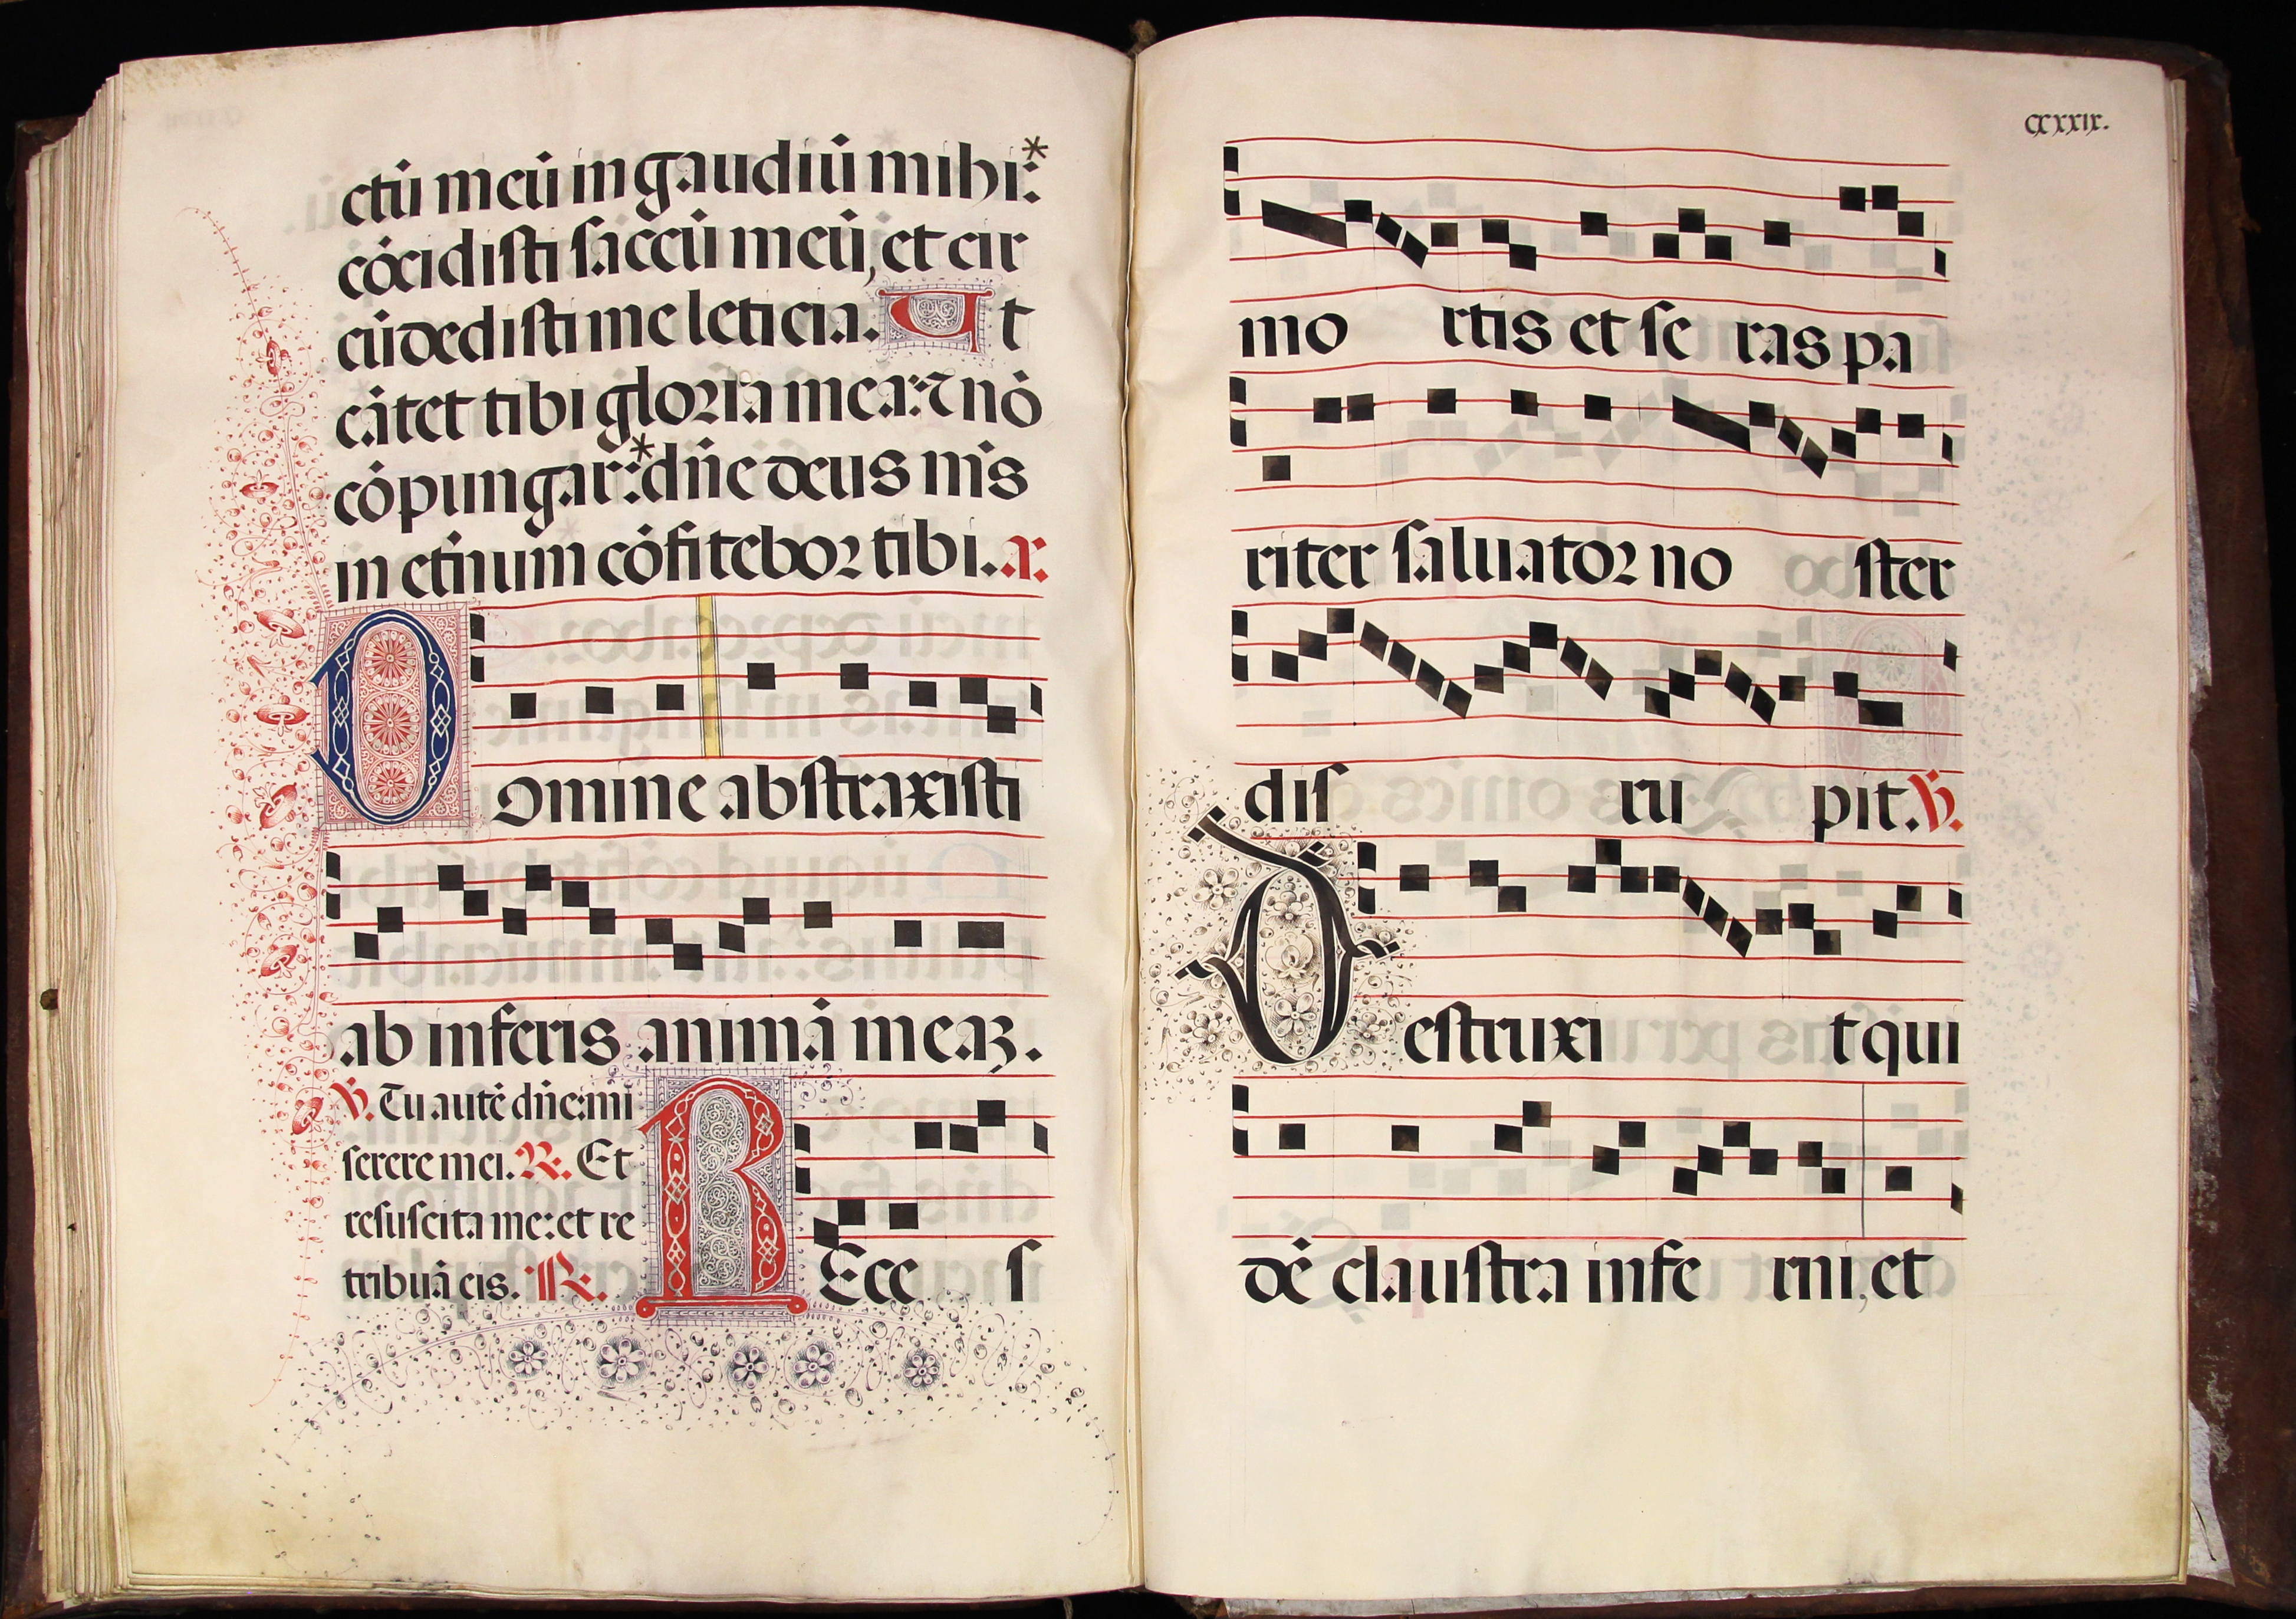 ctū meū in gaudiū mihi:*
cōcidisti saccū meū, et cir
cūdedisti me leticia. Ut
cātet tibi gloria mea: ⁊ nō
cōpungar:* dn̄e deus m̄s
in et̄num cōfitebor tibi. a.
Domine abstraxisti
ab inferis animā meaꝫ.
℣. Tu autē dn̄e: mi
serere mei. ℟. Et
resuscita me: et re
tribuā eis. ℟.
REce s
CXXXIX.
mo rtis et se ras pa
riter saluator no ster
dis ru pit. ℣.
Destruxi t qui
dē claustra infe rni, et